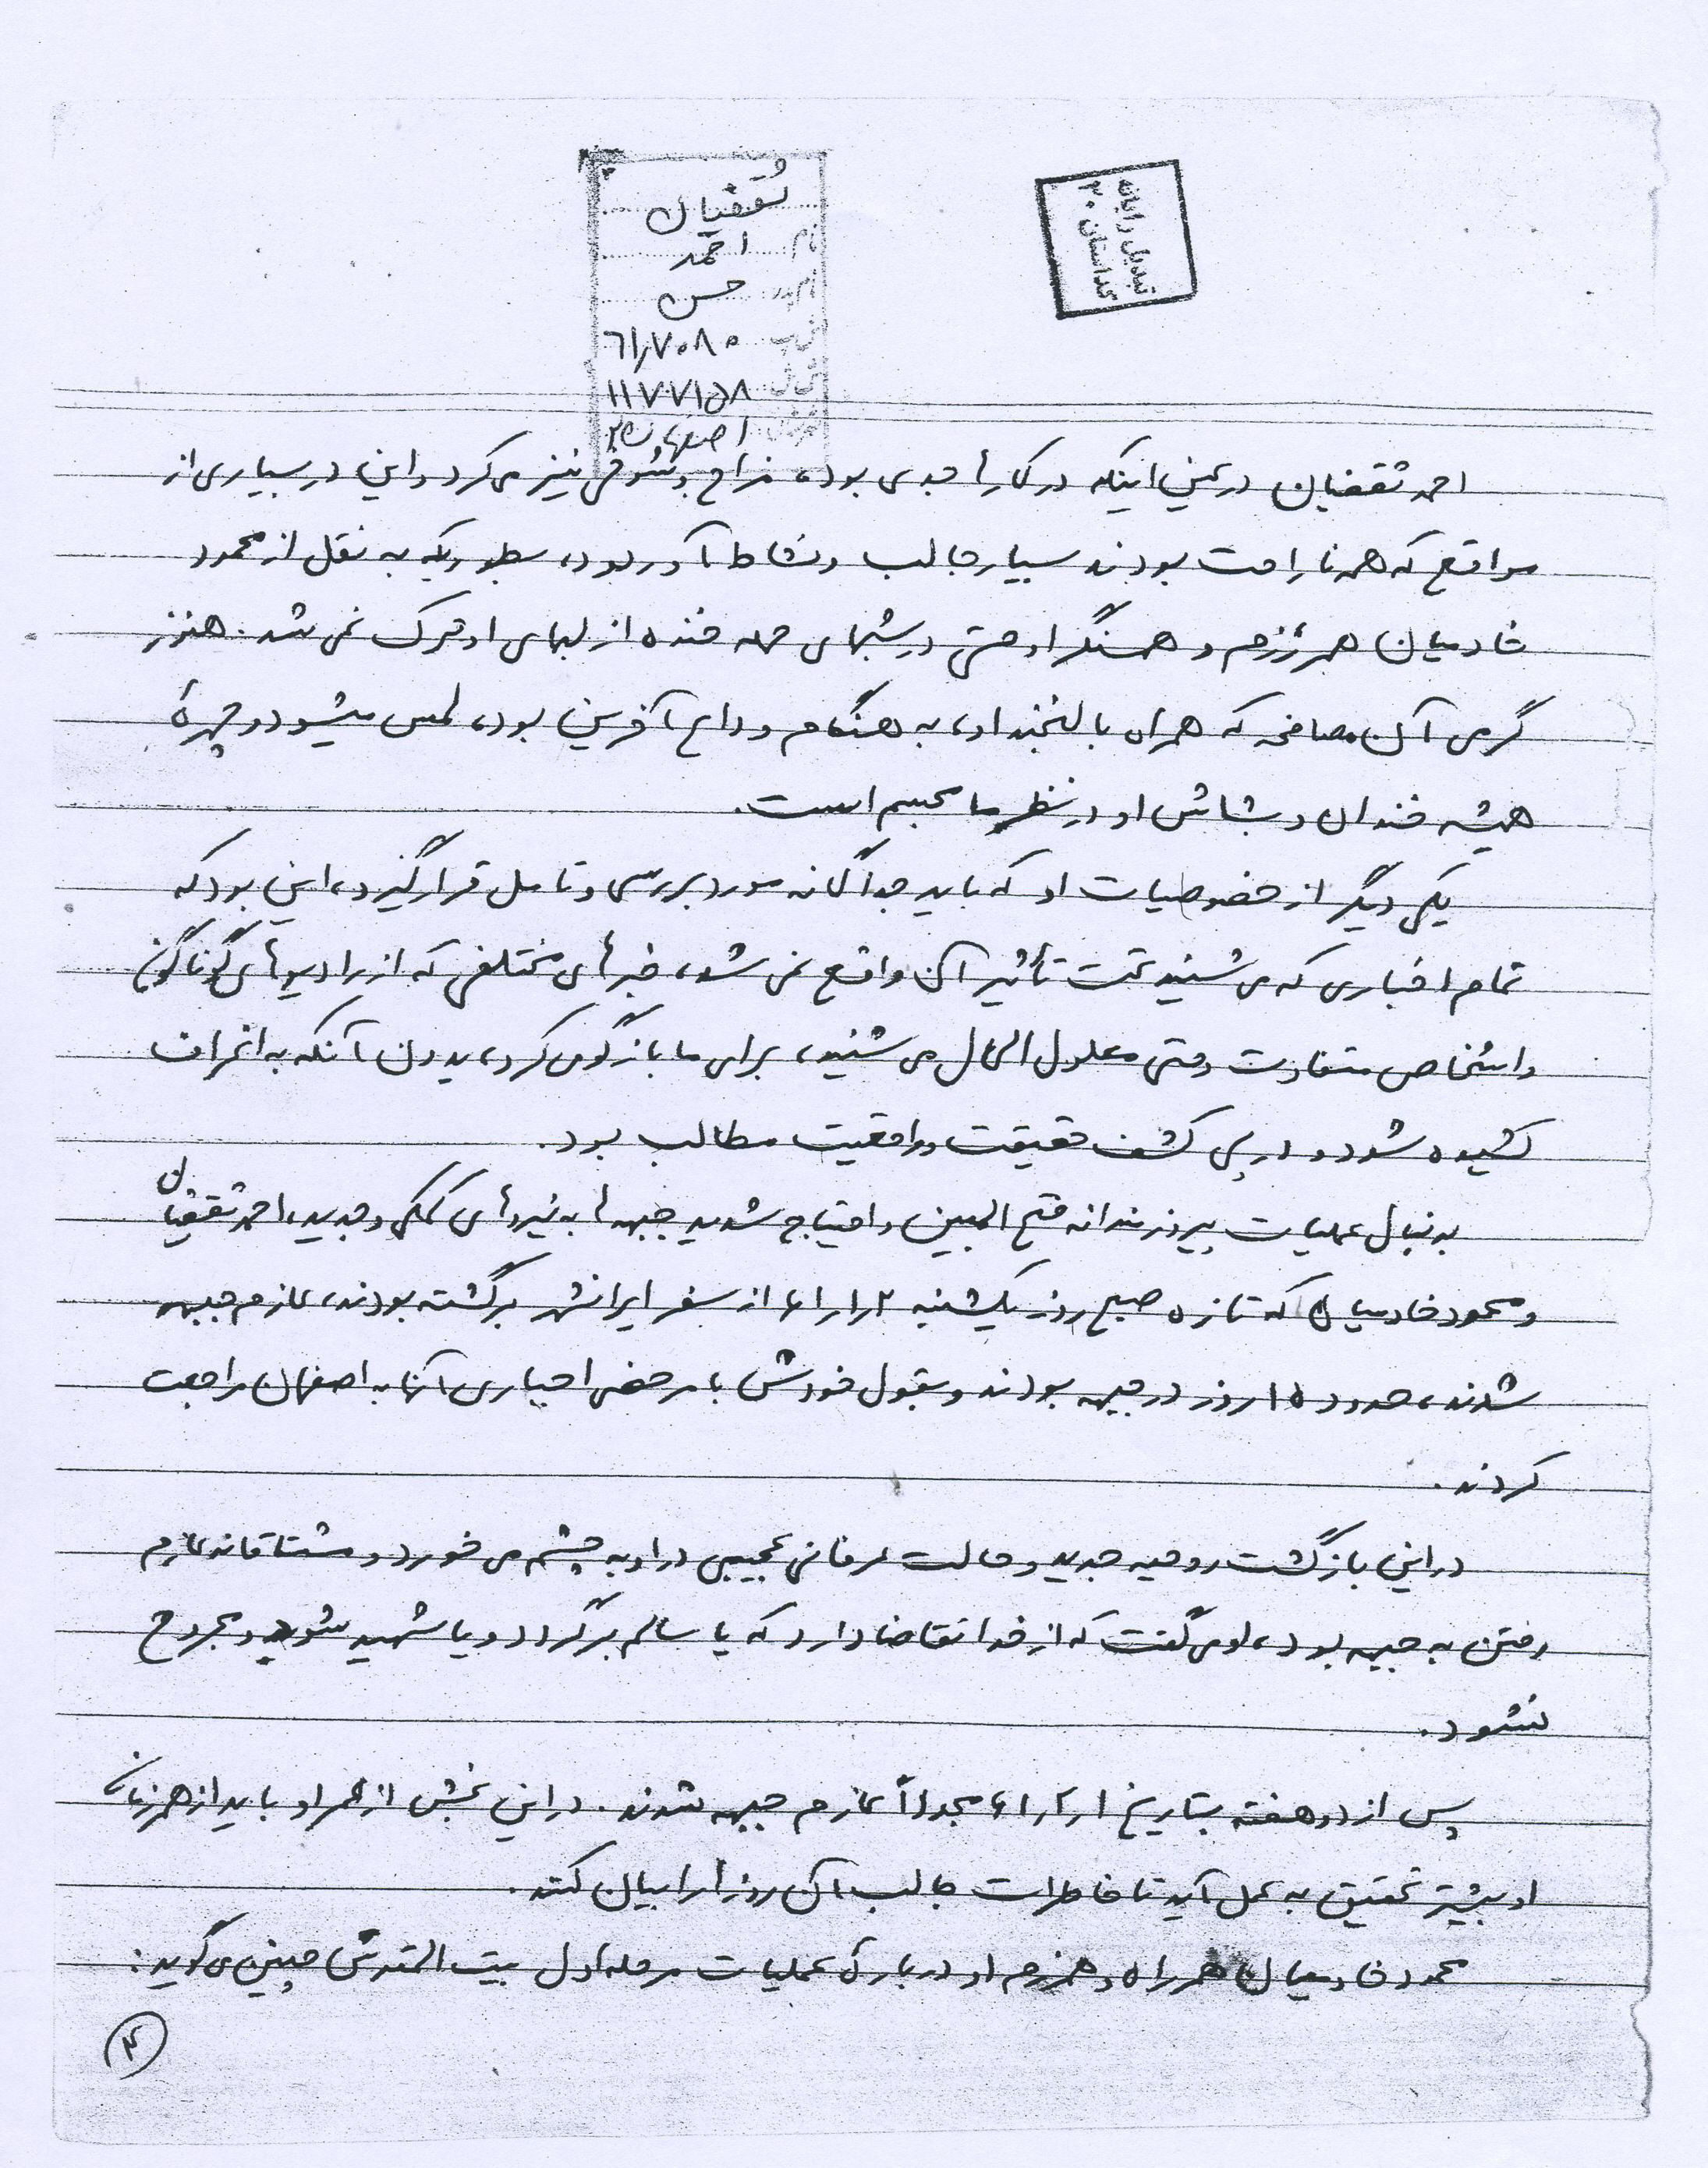 ثقفیان
نام احمد
نام پدر حسن
ش پ ۶۱/۷۰۸۰
ش ش ۱۱۷۷۱۵۸
اصفهان
تبدیل رایانه
گلستان ۳۰
احمد ثقفیان در عین اینکه در کارها جدی بود، مزاح و شوخی نیز می‌کرد و این در بسیاری از
مواقع که همه ناراحت بودند بسیار جالب و نشاط آور بود، بطوریکه به نقل از محمود
خادمیان همرزم و همسنگر او حتی در شبهای حمله خنده از لبهای او ترک نمی‌شد. هنوز
گرمی آن مصافحه که همراه با لبخند او، به هنگام وداع آفرین بود، لمس میشود و چهرهٔ
همیشه خندان و بشاش او در نظر ما مجسم است.
یکی دیگر از خصوصیات او که باید جداگانه مورد بررسی و تامل قرار گیرد، این بود که
تمام اخباری که می‌شنید تحت تأثیر آن واقع نمی‌شد، خبرهای مختلفی که از رادیوهای گوناگون
و اشخاص متفاوت و حتی معلول الحال می‌شنید، برای ما بازگو می‌کرد، بدون آنکه به انحراف
کشیده شود و در پی کشف حقیقت و واقعیت مطالب بود.
به دنبال عملیات پیروزمندانه فتح المبین و احتیاج شدید جبهه‌ها به نیروهای کمکی و جدید، احمد ثقفیان
و محمود خادمیان که تازه صبح روز یکشنبه ۶۱/۱/۲ از سفر ایرانشهر برگشته بودند، عازم جبهه
شدند، حدود ۱۵ روز در جبهه بودند و بقول خودش با مرخصی اجباری آنها به اصفهان مراجعت
کردند.
در این بازگشت روحیه جدید و حالت عرفانی عجیبی در او به چشم می‌خورد و مشتاقانه عازم
رفتن به جبهه بود، او می‌گفت که از خدا تقاضا دارد که یا سالم برگردد و یا شهید شود و مجروح
نشود.
پس از دو هفته بتاریخ ۶۱/۲/۱ مجدداً عازم جبهه شدند. در این بخش از عمر او باید از همرزمان
او بیشتر تحقیق به عمل آید تا خاطرات جالب آن روزها را بیان کنند.
محمود خادمیان همراه و همرزم او درباره عملیات مرحله اول بیت المقدس چنین می‌گوید:
۴